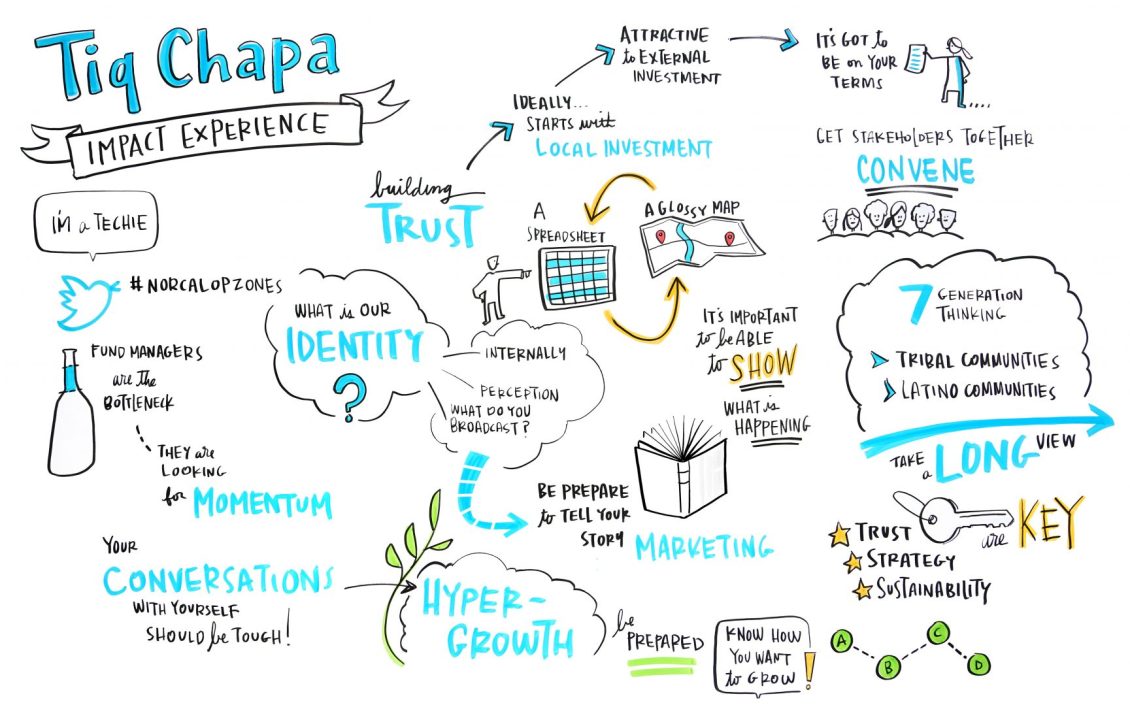 Tiq Chapa
IMPACT EXPERIENCE
I'M a TECHIE
#NORCALOPZONES
FUND MANAGERS
are the
BOTTLENECK
THEY are
LOOKING
for MOMENTUM
YOUR
CONVERSATIONS
WITH YOURSELF
SHOULD be TOUGH!
building
TRUST
IDEALLY...
STARTS with
LOCAL INVESTMENT
ATTRACTIVE
to EXTERNAL
INVESTMENT
IT'S GOT to
BE on YOUR
TERMS
GET STAKEHOLDERS TOGETHER
CONVENE
A
SPREADSHEET
A GLOSSY MAP
WHAT is OUR
IDENTITY
?
INTERNALLY
PERCEPTION
WHAT DO YOU
BROADCAST?
IT'S IMPORTANT
to be ABLE
to SHOW
WHAT is
HAPPENING
BE PREPARE
to TELL YOUR
STORY
MARKETING
HYPER-
GROWTH
be
PREPARED
KNOW HOW
YOU WANT
to GROW!
7 GENERATION
THINKING
TRIBAL COMMUNITIES
LATINO COMMUNITIES
TAKE
a LONG VIEW
TRUST
STRATEGY
SUSTAINABILITY
are KEY
A
B
C
D